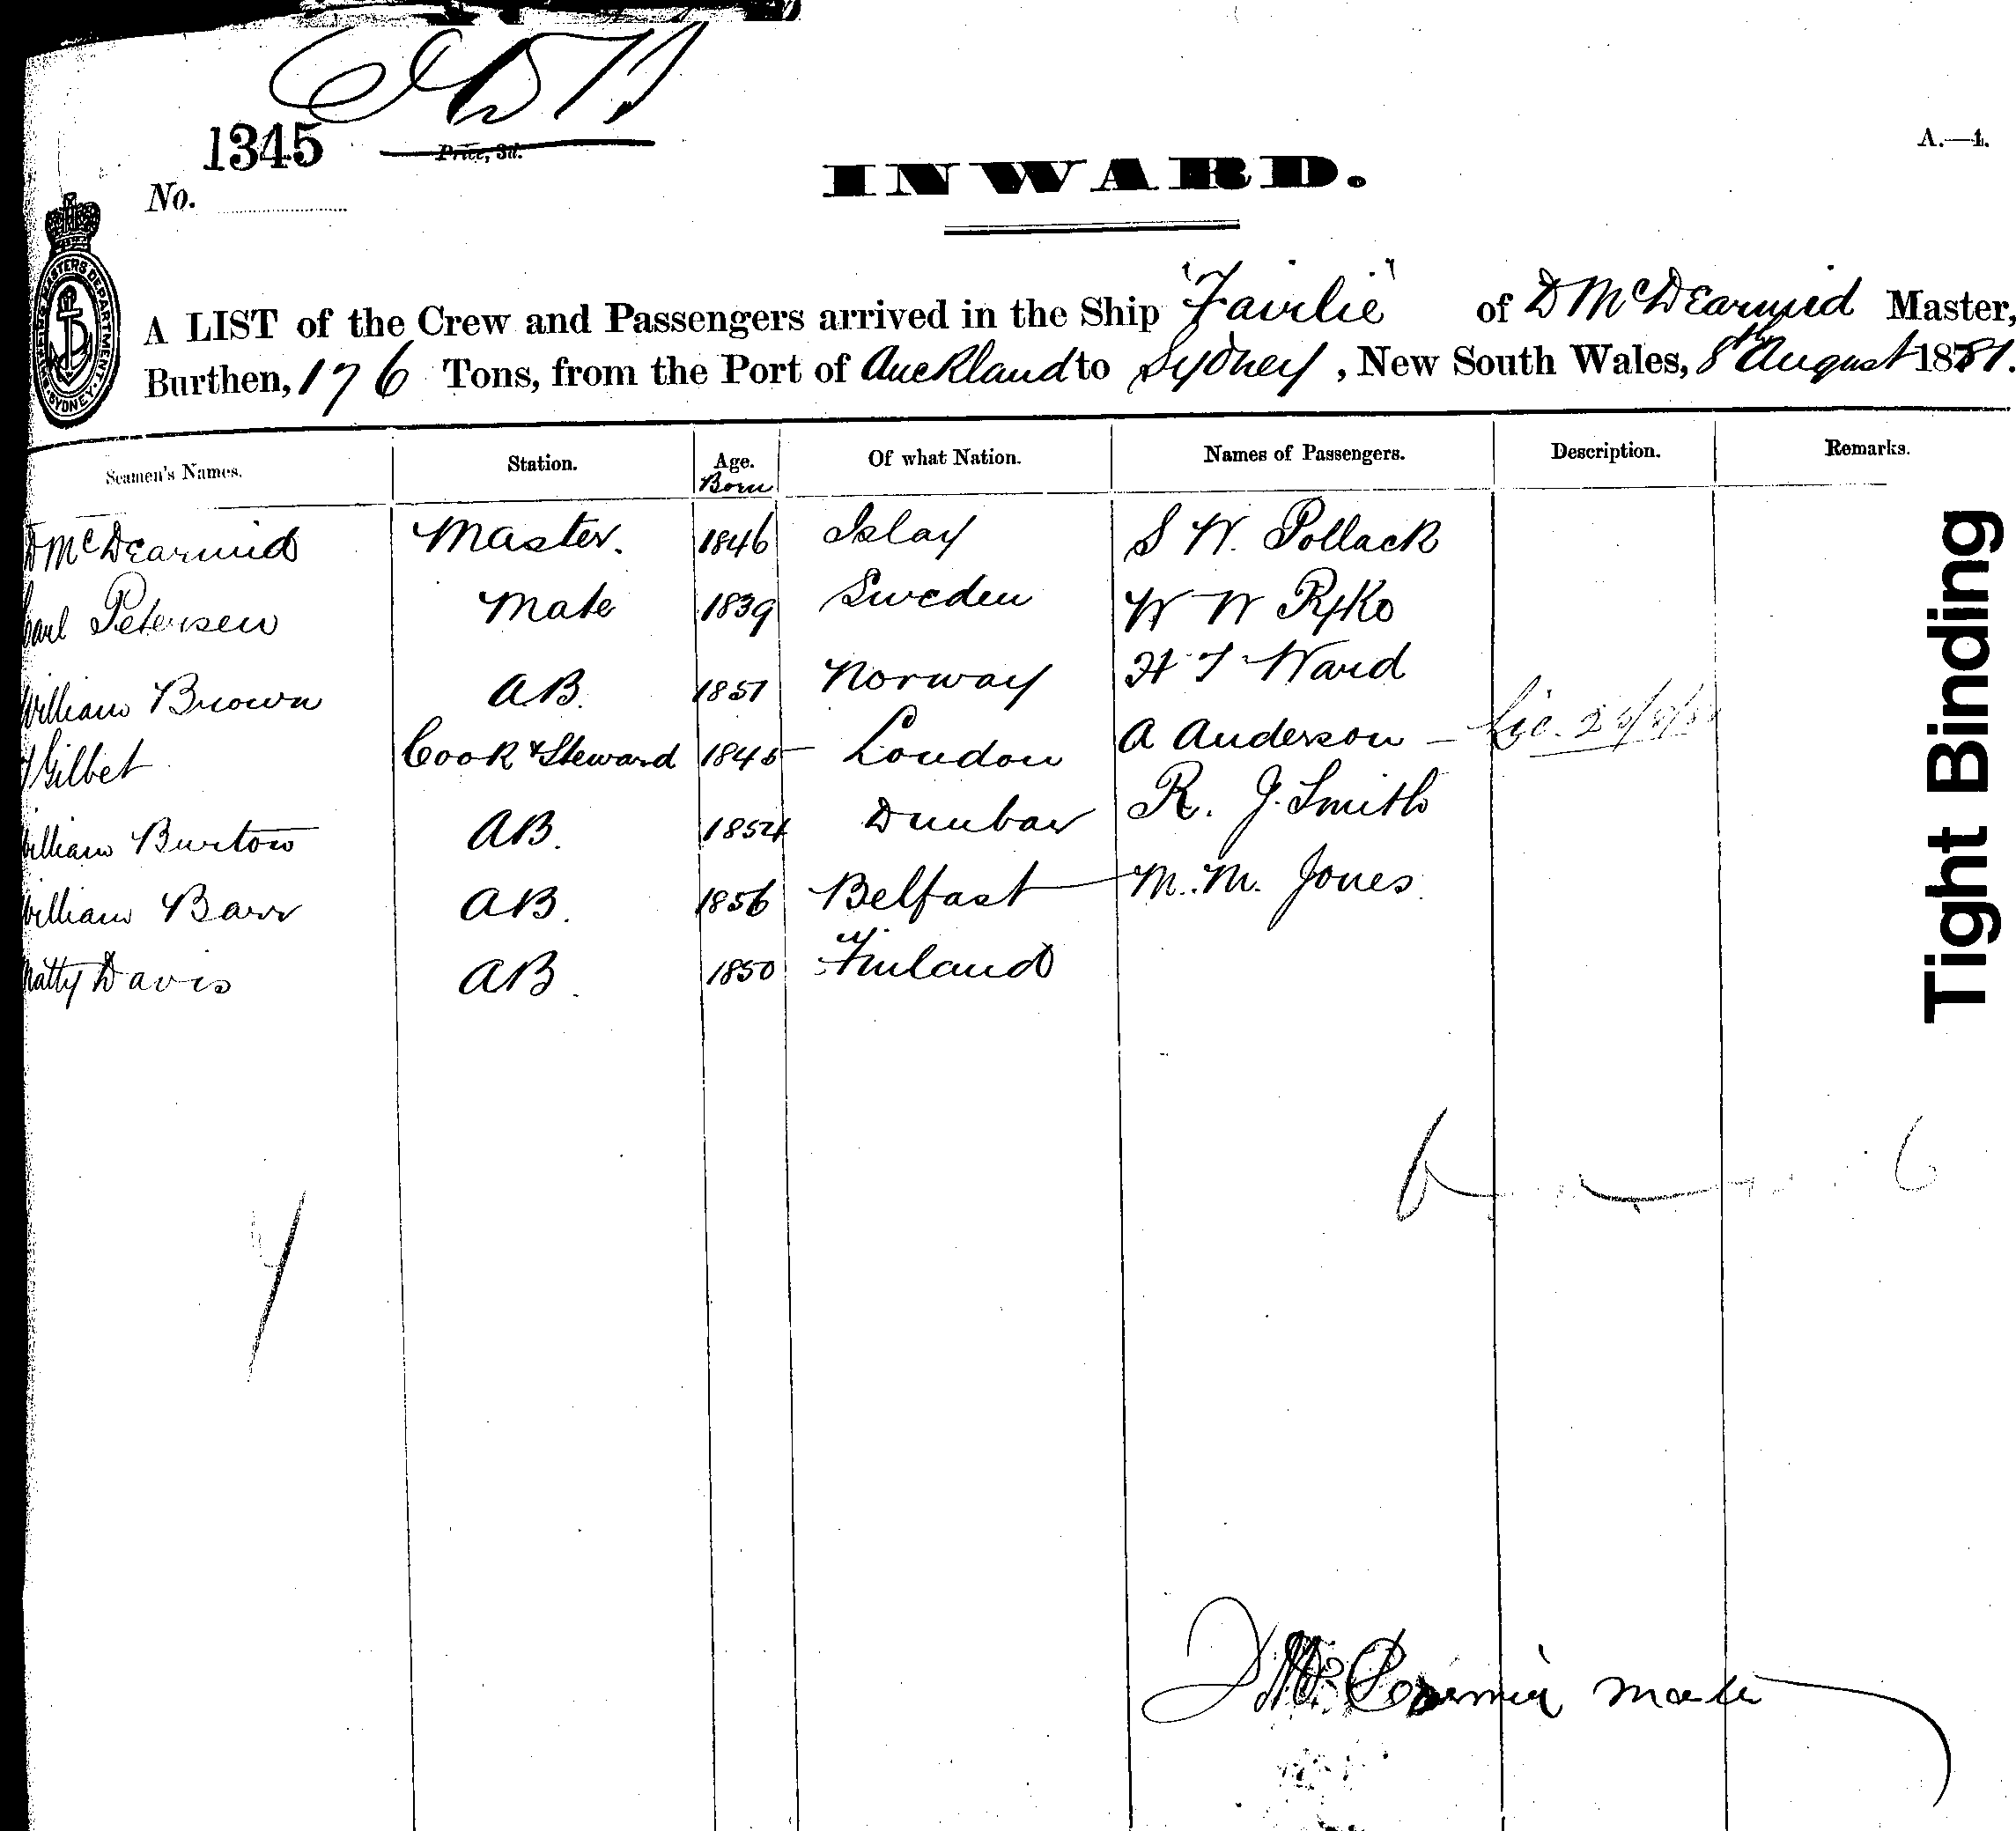 1345
Price, 3d.
A.—4.
No.
INWARD.
A LIST of the Crew and Passengers arrived in the Ship "Fairlie" of D McDearmid Master,
Burthen, 176 Tons, from the Port of Auckland to Sydney, New South Wales, 8th August 1881.
Seamen's Names. Station. Age. Of what Nation. Names of Passengers. Description. Remarks.
Born
D McDearmid Master. 1846 Islay S W. Pollack
Carl Petersen Mate 1839 Sweden W W Ryko
William Brown AB. 1851 Norway H T Ward
Gilbet Cook & Steward 1845 London A Anderson — Lic.
William Burton AB. 1854 Dunbar R. J. Smith
William Barr AB. 1856 Belfast M. M. Jones.
Matty Davis AB. 1850 Finland
6 6
Tight Binding